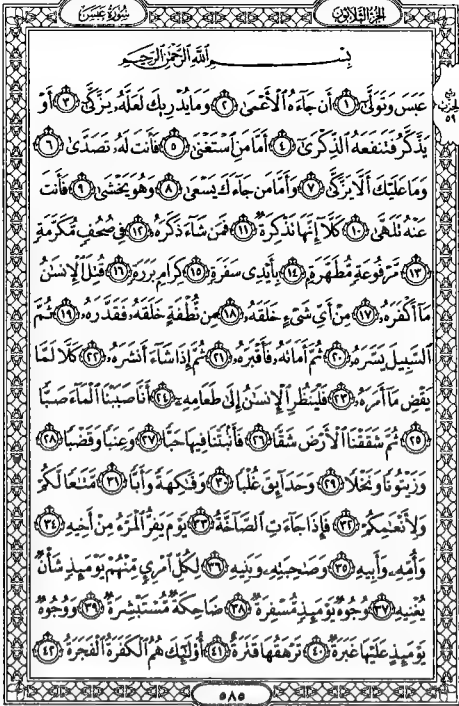 سُورَةُ عَبَسَ الجُزْءُ الثَّلَاثُونَ
بِسْمِ اللَّهِ الرَّحْمَٰنِ الرَّحِيمِ
عَبَسَ وَتَوَلَّىٰٓ ١ أَن جَآءَهُ ٱلْأَعْمَىٰ ٢ وَمَا يُدْرِيكَ لَعَلَّهُۥ يَزَّكَّىٰٓ ٣ أَوْ
يَذَّكَّرُ فَتَنفَعَهُ ٱلذِّكْرَىٰٓ ٤ أَمَّا مَنِ ٱسْتَغْنَىٰ ٥ فَأَنتَ لَهُۥ تَصَدَّىٰ ٦
وَمَا عَلَيْكَ أَلَّا يَزَّكَّىٰ ٧ وَأَمَّا مَن جَآءَكَ يَسْعَىٰ ٨ وَهُوَ يَخْشَىٰ ٩ فَأَنتَ
عَنْهُ تَلَهَّىٰ ١٠ كَلَّآ إِنَّهَا تَذْكِرَةٌ ١١ فَمَن شَآءَ ذَكَرَهُۥ ١٢ فِى صُحُفٍ مُّكَرَّمَةٍ
١٣ مَّرْفُوعَةٍ مُّطَهَّرَةٍۭ ١٤ بِأَيْدِى سَفَرَةٍ ١٥ كِرَامٍۭ بَرَرَةٍ ١٦ قُتِلَ ٱلْإِنسَٰنُ
مَآ أَكْفَرَهُۥ ١٧ مِنْ أَىِّ شَىْءٍ خَلَقَهُۥ ١٨ مِن نُّطْفَةٍ خَلَقَهُۥ فَقَدَّرَهُۥ ١٩ ثُمَّ
ٱلسَّبِيلَ يَسَّرَهُۥ ٢٠ ثُمَّ أَمَاتَهُۥ فَأَقْبَرَهُۥ ٢١ ثُمَّ إِذَا شَآءَ أَنشَرَهُۥ ٢٢ كَلَّا لَمَّا
يَقْضِ مَآ أَمَرَهُۥ ٢٣ فَلْيَنظُرِ ٱلْإِنسَٰنُ إِلَىٰ طَعَامِهِۦٓ ٢٤ أَنَّا صَبَبْنَا ٱلْمَآءَ صَبًّا
٢٥ ثُمَّ شَقَقْنَا ٱلْأَرْضَ شَقًّا ٢٦ فَأَنۢبَتْنَا فِيهَا حَبًّا ٢٧ وَعِنَبًا وَقَضْبًا ٢٨
وَزَيْتُونًا وَنَخْلًا ٢٩ وَحَدَآئِقَ غُلْبًا ٣٠ وَفَٰكِهَةً وَأَبًّا ٣١ مَّتَٰعًا لَّكُمْ
وَلِأَنْعَٰمِكُمْ ٣٢ فَإِذَا جَآءَتِ ٱلصَّآخَّةُ ٣٣ يَوْمَ يَفِرُّ ٱلْمَرْءُ مِنْ أَخِيهِ ٣٤
وَأُمِّهِۦ وَأَبِيهِ ٣٥ وَصَٰحِبَتِهِۦ وَبَنِيهِ ٣٦ لِكُلِّ ٱمْرِئٍ مِّنْهُمْ يَوْمَئِذٍ شَأْنٌ
يُغْنِيهِ ٣٧ وُجُوهٌ يَوْمَئِذٍ مُّسْفِرَةٌ ٣٨ ضَاحِكَةٌ مُّسْتَبْشِرَةٌ ٣٩ وَوُجُوهٌ
يَوْمَئِذٍ عَلَيْهَا غَبَرَةٌ ٤٠ تَرْهَقُهَا قَتَرَةٌ ٤١ أُو۟لَٰٓئِكَ هُمُ ٱلْكَفَرَةُ ٱلْفَجَرَةُ ٤٢
ربع
الحزب
٥٩
٥٨٥